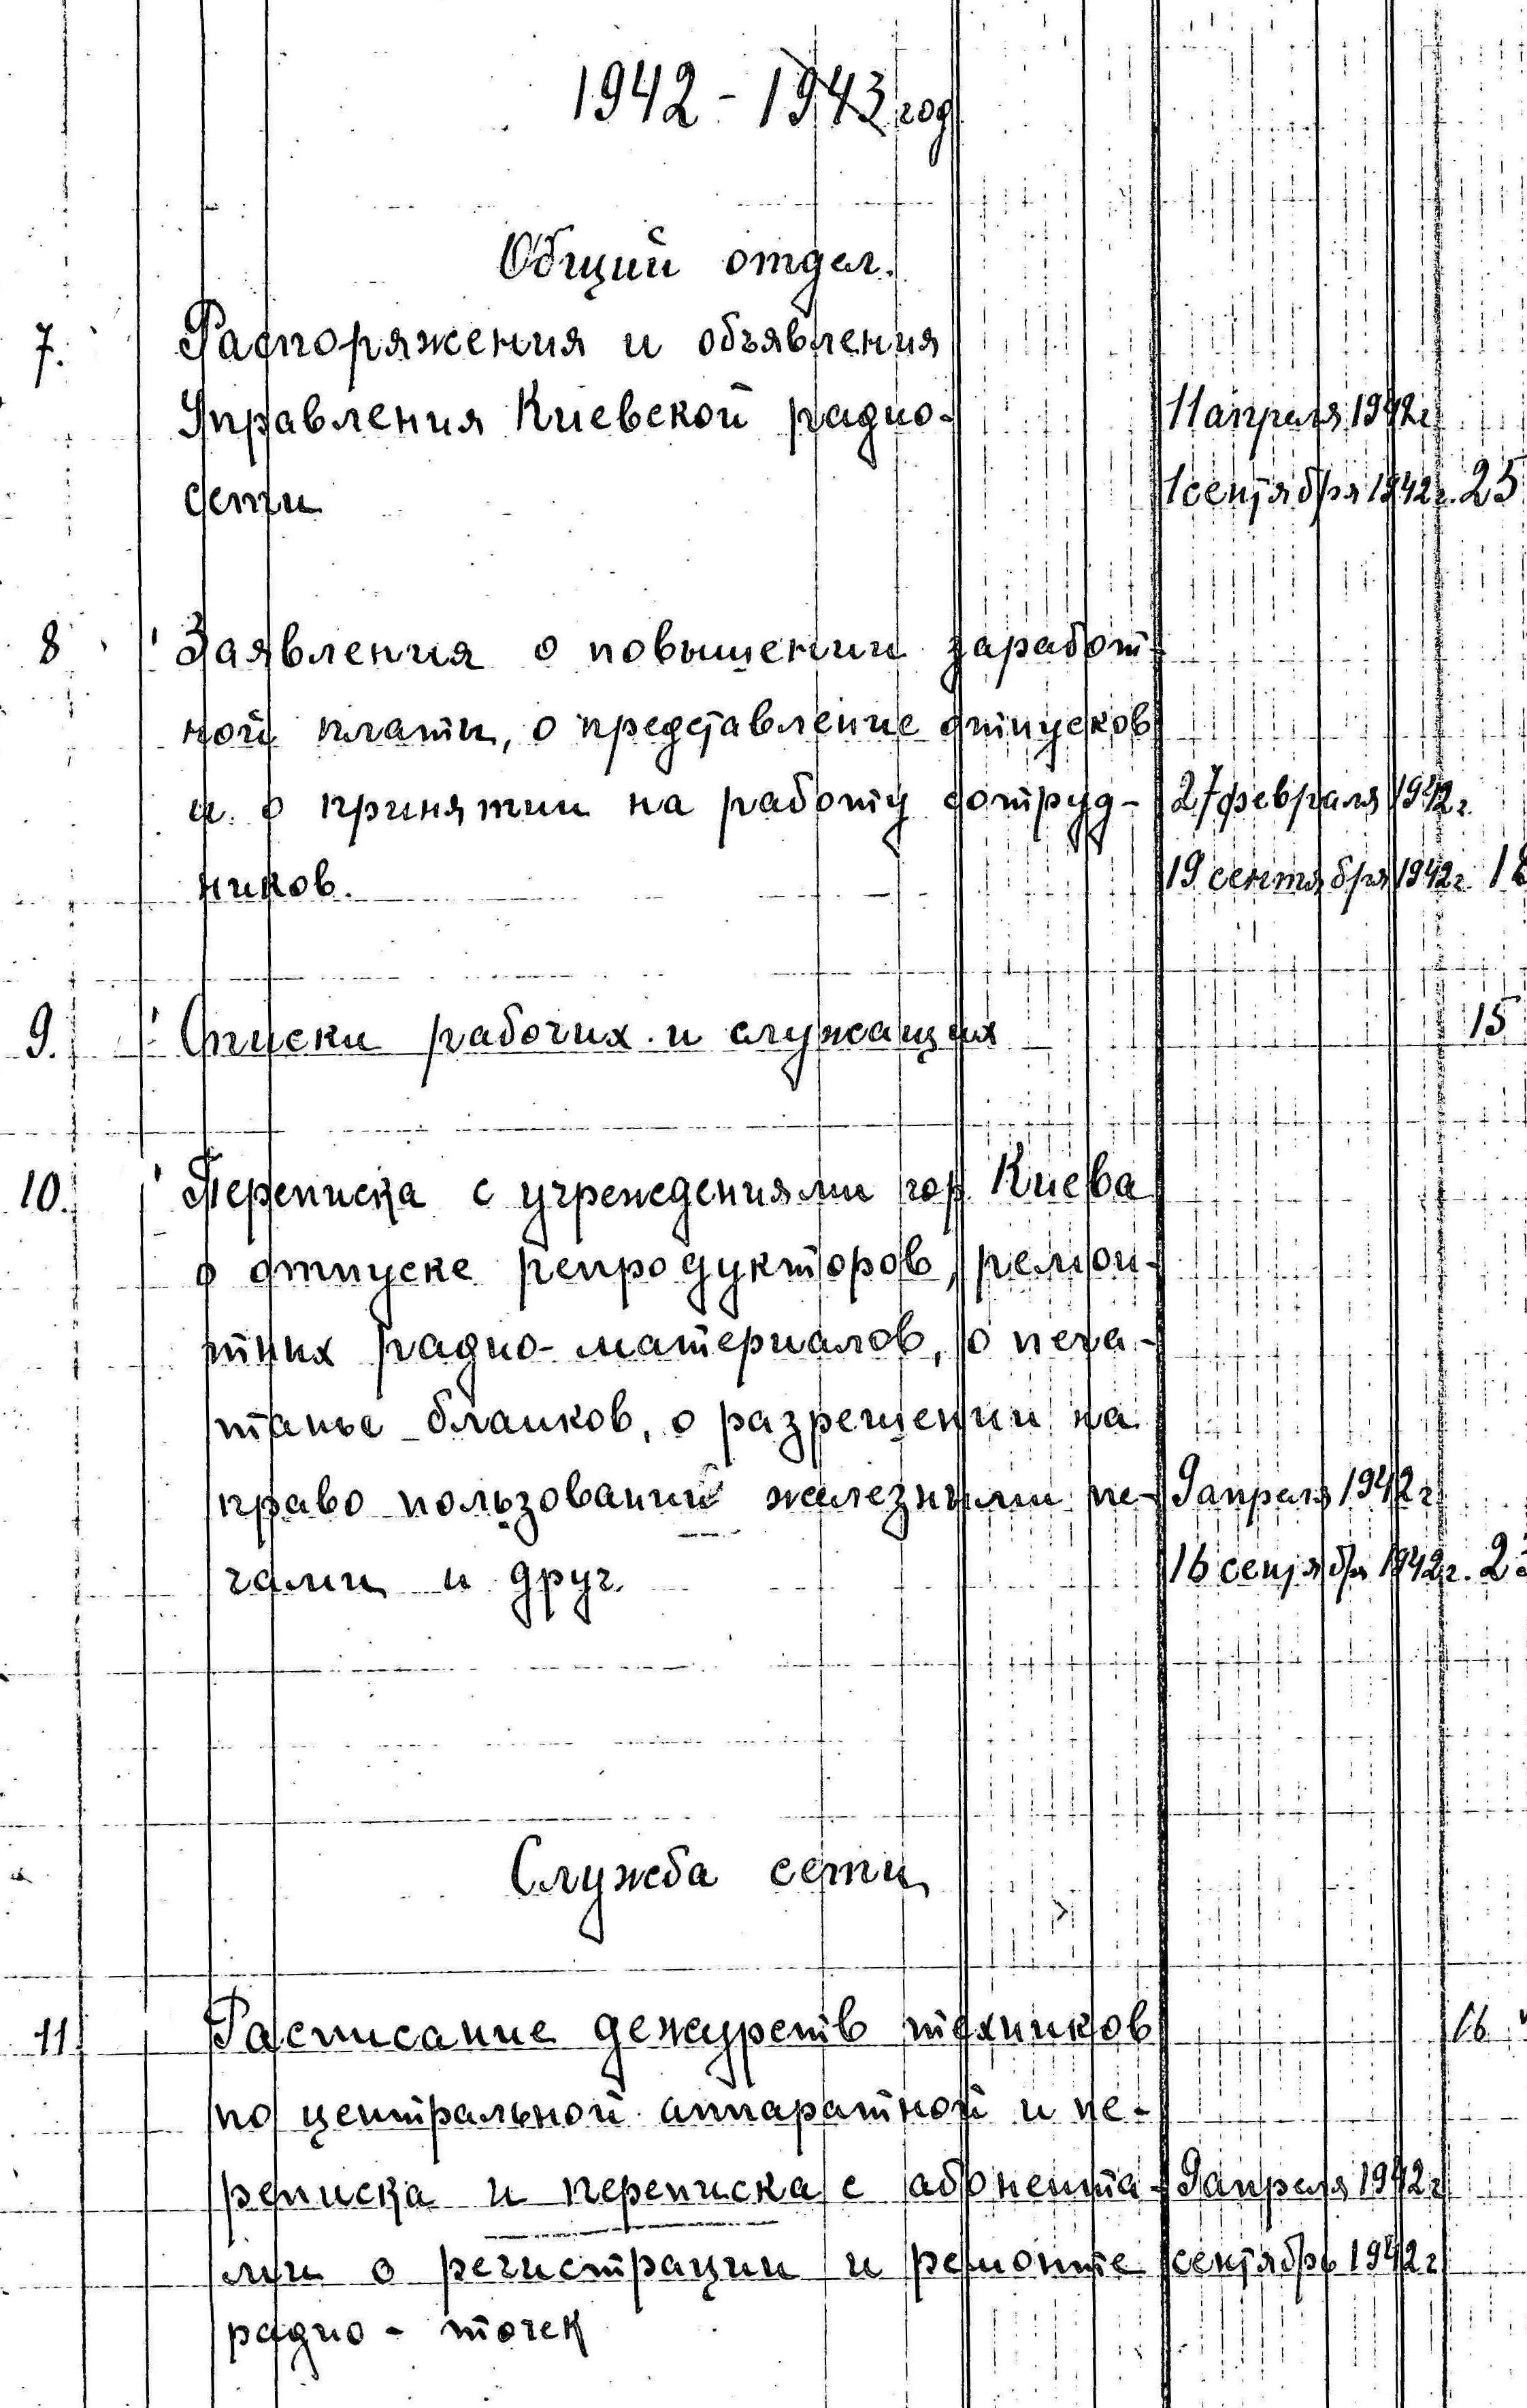 1942 - 1943 год
Общий отдел.
7. Распоряжения и объявления
Управления Киевской радио- 11 апреля 1942 г
сети 1 сентября 1942 г. 25
8 Заявления о повышении заработ-
ной плати, о представление отпусков
и о принятии на работу сотруд- 27 февраля 1942 г.
ников. 19 сентября 1942 г.
9. Списки рабочих и служащих 15
10. Переписка с учреждениями гор. Киева
о отпуске репродукторов, ремон-
тних радио-материалов, о печа-
танье бланков, о разрешении на
право пользований железными пе- 9 апреля 1942 г
чами и друг. 16 сентября 1942 г.
Служба сети
11 Расписание дежурств техников 16
по центральной аппаратной и пе-
реписка и переписка с абонента- 9 апреля 1942 г
ми о регистрации и ремонте сентябрь 1942 г
радио - точек